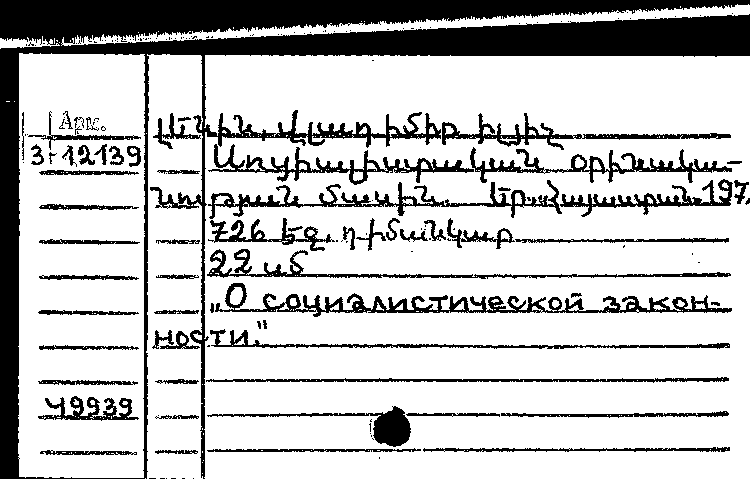 Арм.
Լենին, Վլադիմիր Իլյիչ
3-12139 Սոցիալիստական օրինակա-
նության մասին. Եր. «Հայաստան» 197
726 էջ, դիմանկար
22 սմ
„О социалистической закон-
ности."
49939